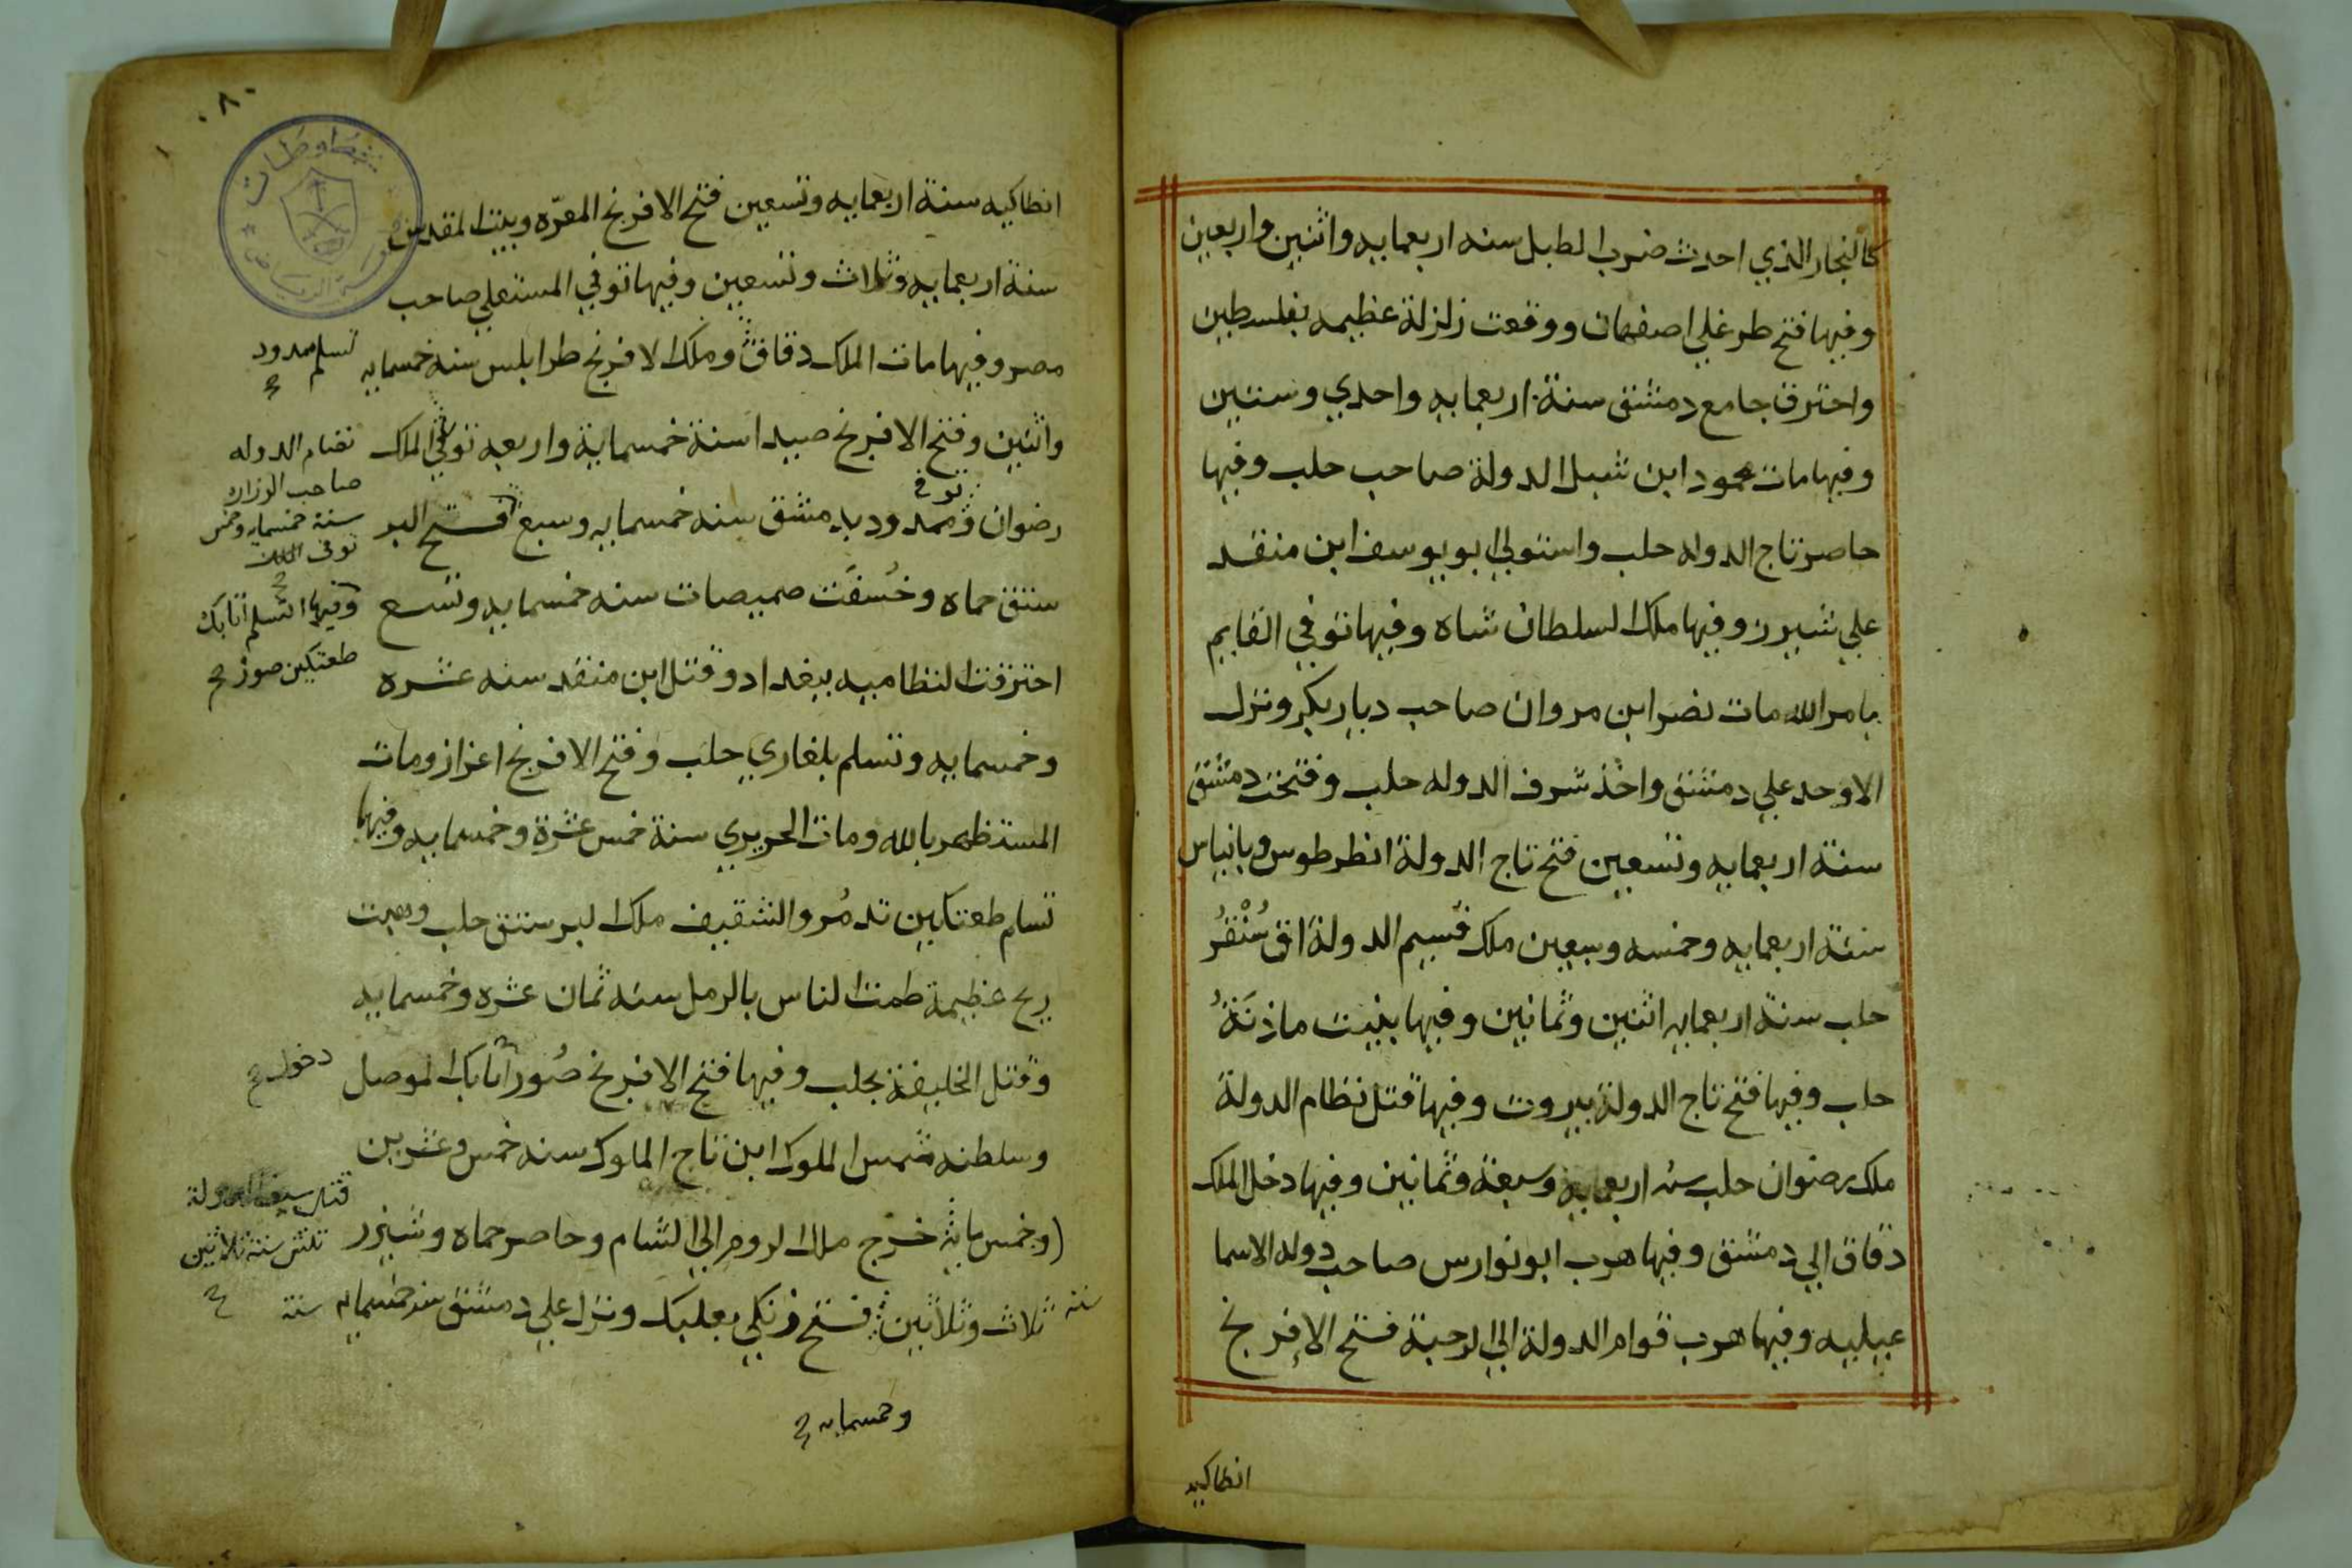 كالنجار الذي احدث ضرب الطبل سنه اربعمايه واثنين واربعين
وفيها فتح طرغلي اصفهان ووقعت زلزلة عظيمه بفلسطين
واحترق جامع دمشق سنة اربعمايه واحدي وستين
وفيها مات محمود ابن شبل الدولة صاحب حلب وفيها
حاصر تاج الدوله حلب واستولي ابو يوسف ابن منقد
علي شيرز وفيها ملك السلطان شاه وفيها توفي القايم
بامر الله مات نصر ابن مروان صاحب ديار بكر ونزل
الاوحد علي دمشق واخذ شرف الدوله حلب وفتحت دمشق
سنة اربعمايه وتسعين فتح تاج الدولة انطرطوس وبانياس
سنة اربعمايه وخمسه وسبعين ملك قسيم الدولة اق سُنْقُرُ
حلب سنة اربعمايه اثنين وثمانين وفيها بنيت ماذنَةُ
حلب وفيها فتح تاج الدولة بيروت وفيها قتل نظام الدولة
ملك رضوان حلب سنه اربعمايه وسبعة وثمانين وفيها دخل الملك
دقاق الي دمشق وفيها هرب ابو نوارس صاحب دوله الاسما
عيليه وفيها هرب قوام الدولة الي الرحبة فتح الافرنج
انطاكيه
٨٠
انطاكيه سنة اربعمايه وتسعين فتح الافرنج المعرّه وبيت المقدس
سنة اربعمايه وثلاث وتسعين وفيها توفي المستعلي صاحب
مصر وفيها مات الملك دقاق وملك الافرنج طرابلس سنه خمسمايه
تسلم ممدود
واثنين وفتح الافرنج صيدا سنة خمسماية واربعه توفي الملك
نضام الدوله
صاحب الوزاره
سنة خمسمايه وخمس
توفي الملك
رضوان وممدود بدمشق سنه خمسمايه وسبع فتح البر
توفي
سنتق حماه وخُسفَت صميصات سنه خمسمايه وتسع
وفيها اتسلم اتابك
طغتكين صور
احترقت النظاميه ببغداد وقتل ابن منقد سنه عشره
وخمسمايه وتسلم بلغاري حلب وفتح الافرنج اعزاز ومات
المستظهر بالله ومات الحريري سنة خمس عشرة وخمسمايه وفيها
تسلم طغتكين تدمُر والشقيف ملك البرستق حلب وهبت
ريح عظيمة طمت الناس بالرمل سنه ثمان عشره وخمسمايه
وقتل الخليفة بحلب وفيها فتح الافرنج صُور اتابك الموصل
دخول
وسلطنه شمس الملوك ابن تاج الملوك سنه خمس وعشرين
قتل سيف الدولة
(وخمس ماية خرج ملك الروم الي الشام وحاصر حماه وشيزر
سنة ثلاثين
سنه ثلاث وثلاثين فتح زنكي بعلبك ونزل علي دمشق سنه خمسمايه سنة
وخمسمايه